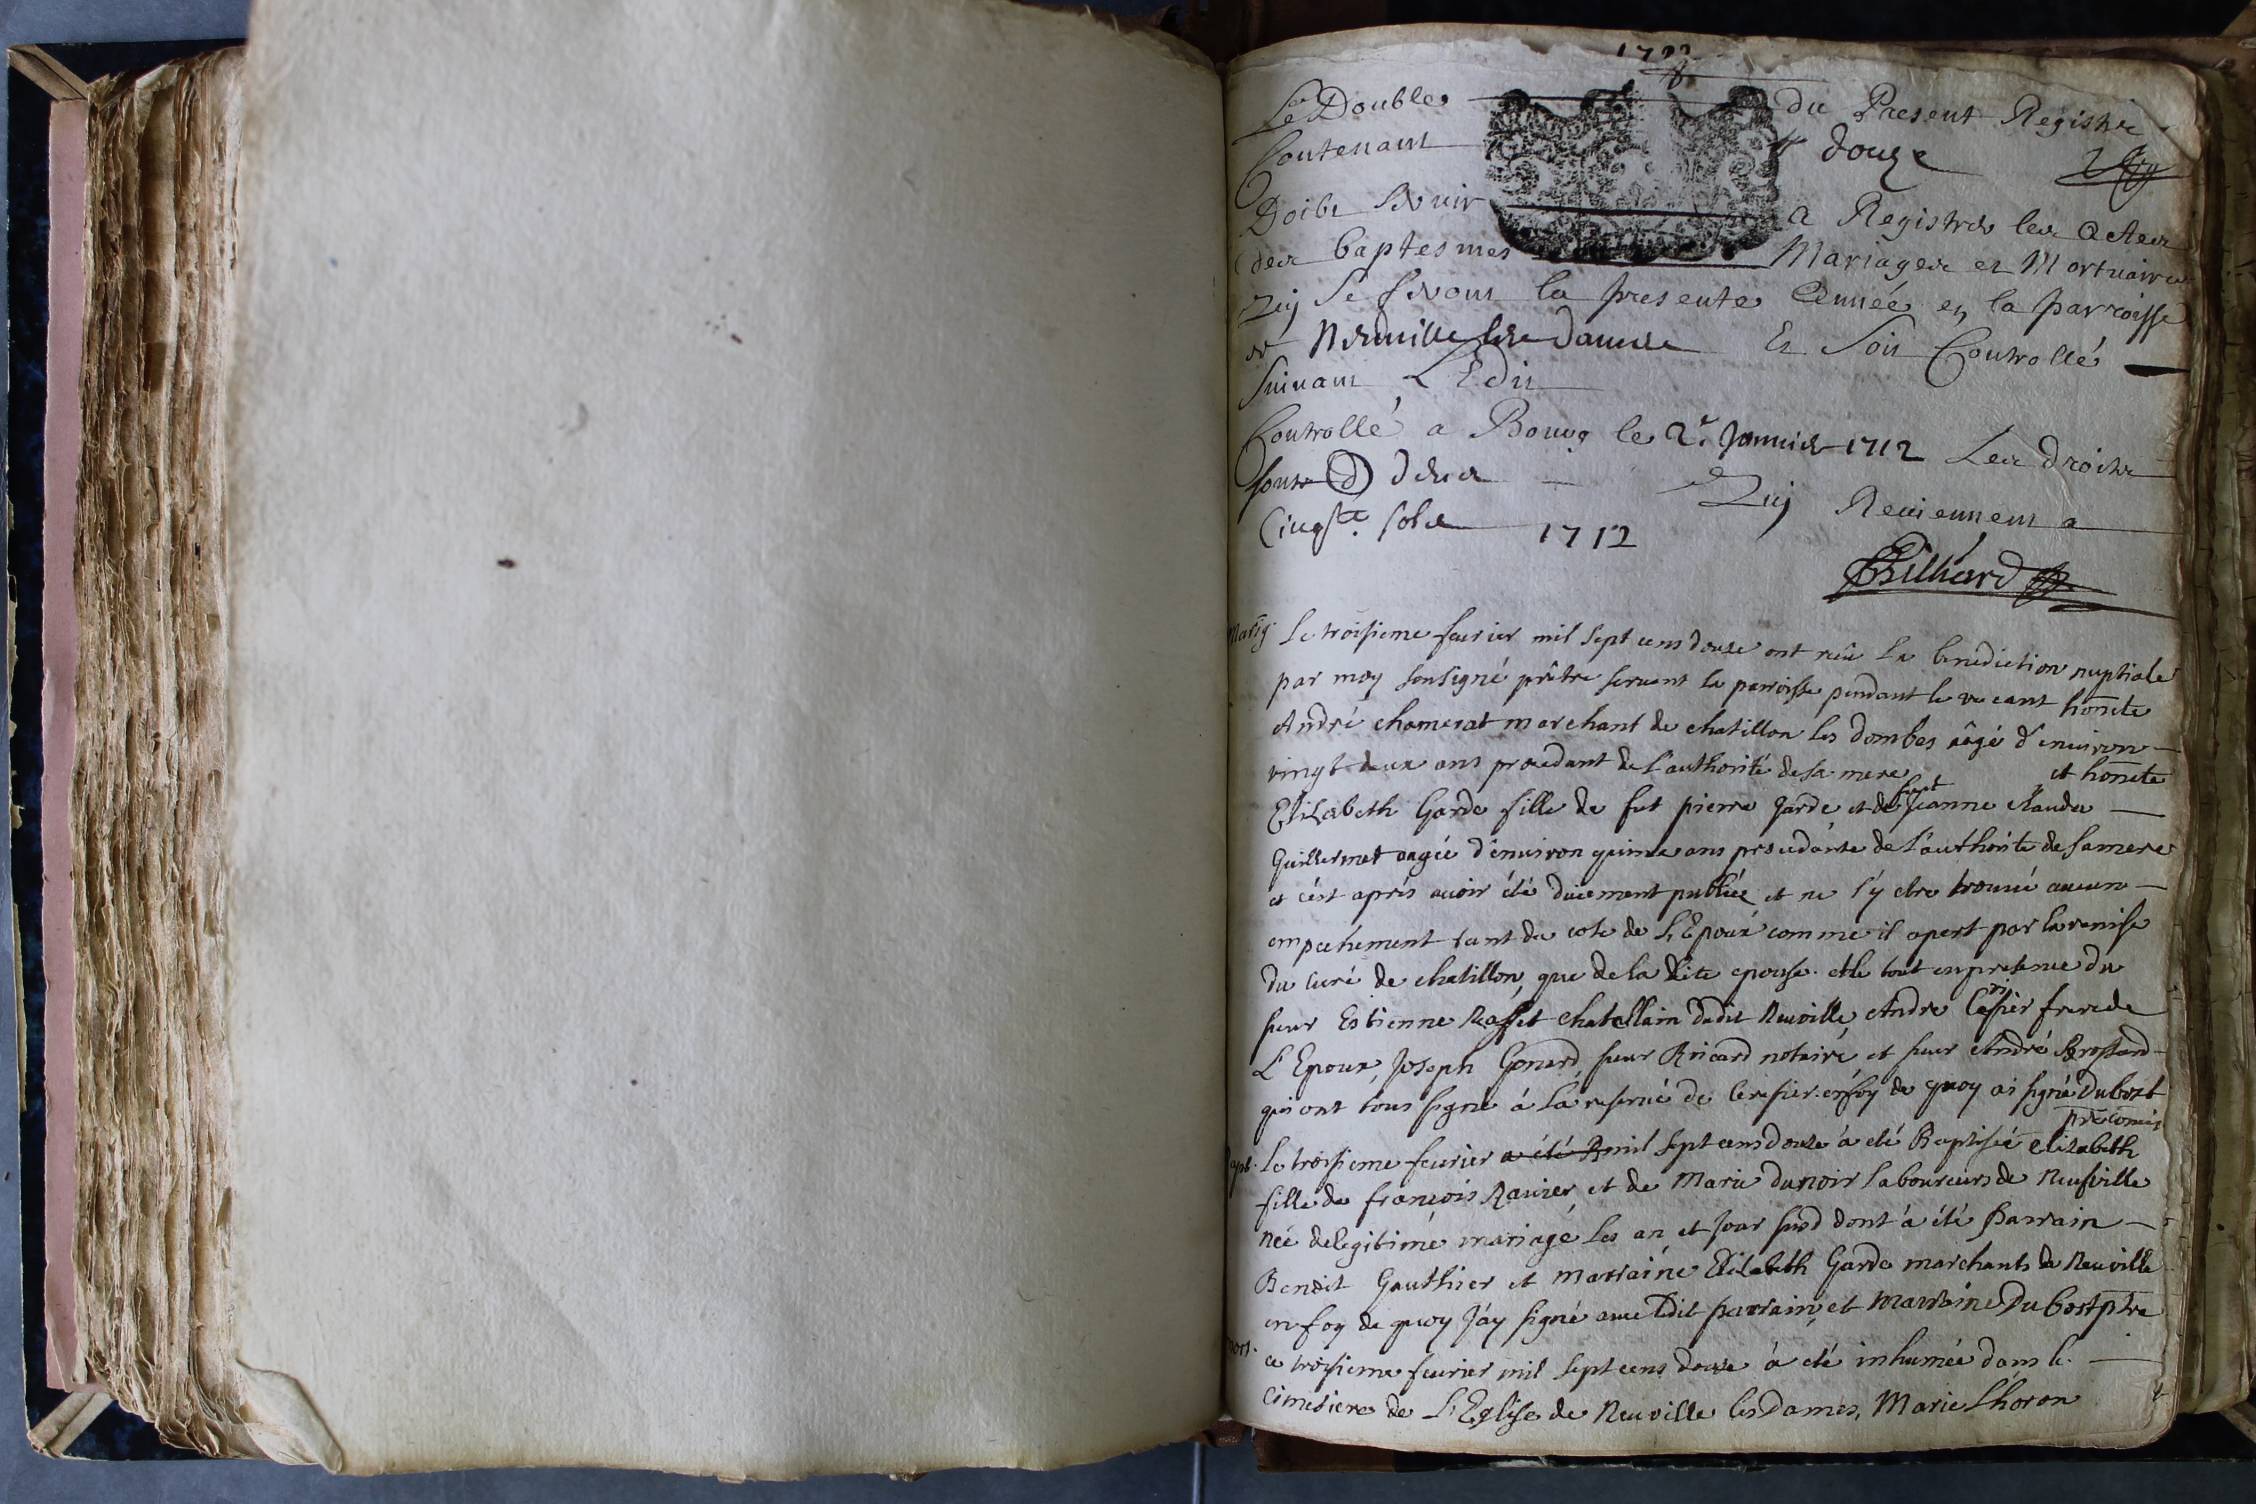 1712
Le Double du Present Registre
Contenant douze
Doibt servir a Registrer les Actes
des baptesmes Mariages et Mortuaires
Quy se feront la presente Année en la parroisse
de Neuville les dames Et Soit Controllé
Suivant L'Edit
Controllé a Bourg le 2e Janvier 1712 Les droits
sont Quy Reviennent a
Cinqte sols 1712
Bilhard
Marig. Le troisieme feurier mil sept cens douze ont reçû la benediction nuptiale
par moy soussigné prêtre servant la parroisse pendant le vacant honete
André chamerat marchant de chatillon les dombes aâgé d'environ
vingt deux ans procedant de l'authorité de sa mere et honete
Elizabeth Garde fille de fut pierre Garde et de Jeanne claudea
Guillermet aagée d'environ quinze ans procedante de l'authorite de sa mere
et c'est aprés avoir été duëment publiée et ne s'y etre trouvé aucun
empechement tant du cote de L'Epoux comme il apert par la remise
du curé de chatillon, que de la dite epouse. et le tout en presence du
sieur Estienne Raffet chatellain dudit Neuville, Andre Cerisier frere de
L'Epoux, Joseph Gonard, sieur Ricard notaire et sieur André Brossand
qui ont tous signé á la reserve de Cerisier. en foy de quoy ai signé Dubost
ptre comis
Bapt. Le troisieme feurier a été B mil sept cens douze á eté Baptisée elizabeth
fille de françois Ravier et de Marie dunoir laboureurs de Neufville
née de legitime mariage les an et jour susd dont á été Parrain
Benoit Gauthier et marraine Elizabeth Garde marchants de Neuville
en foy de quoy J'ay signé avec ledit parrain et marraine Dubost ptre
mort. ce troisieme feurier mil sept cens douze á eté inhumée dans le
Cimetiere de L'Eglise de Neuville les Dames, Marie Lhoron